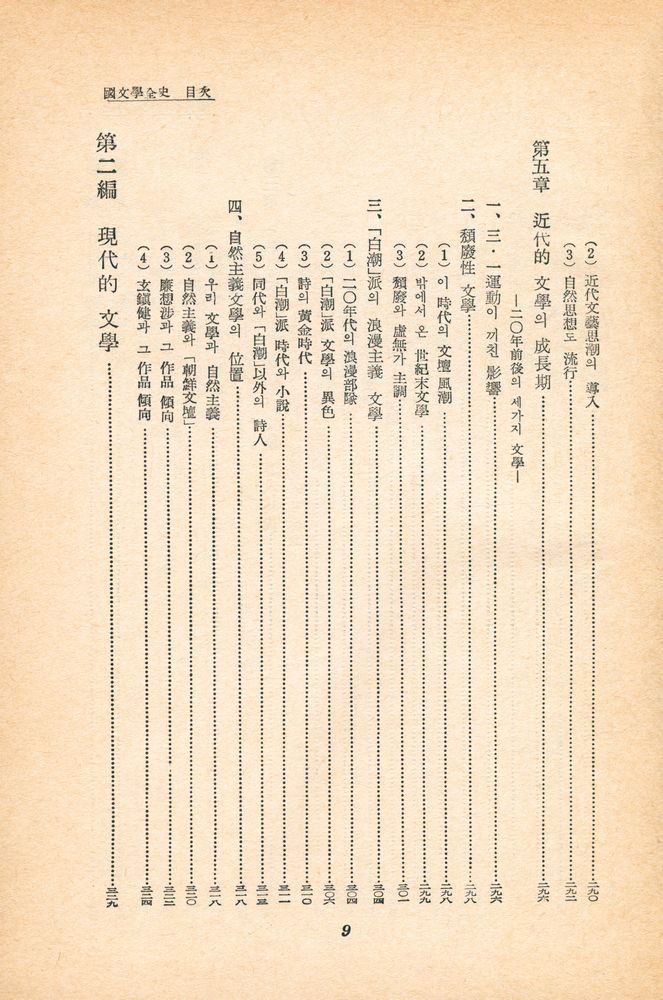 國文學全史 目次
(2) 近代文藝思潮의 導入……二九〇
(3) 自然思想도 流行……二九二
第五章 近代的 文學의 成長期……二九六
―二〇年前後의 세가지 文學―
一、三·一運動이 끼친 影響……二九六
二、頹廢性 文學……二九八
(1) 이 時代의 文壇 風潮……二九八
(2) 밖에서 온 世紀末文學……二九九
(3) 頹廢와 虛無가 主調……三〇一
三、「白潮」派의 浪漫主義 文學……三〇四
(1) 二〇年代의 浪漫部隊……三〇四
(2) 「白潮」派 文學의 異色……三〇六
(3) 詩의 黃金時代……三一〇
(4) 「白潮」派 時代와 小說……三一一
(5) 同代와 「白潮」以外의 詩人……三一三
四、自然主義文學의 位置……三一八
(1) 우리 文學과 自然主義……三一八
(2) 自然主義와 「朝鮮文壇」……三二〇
(3) 廉想涉과 그 作品 傾向……三二二
(4) 玄鎭健과 그 作品 傾向……三二四
第二編 現代的 文學……三二九
9